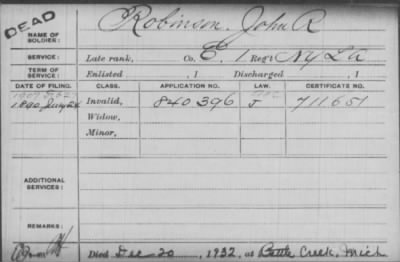 DEAD
NAME OF SOLDIER: Robinson, John R
SERVICE: Late rank, Co. E, 1 Reg't NY L A
TERM OF SERVICE: Enlisted , 1 Discharged , 1
DATE OF FILING. CLASS. APPLICATION NO. LAW. CERTIFICATE NO.
1890 July 24 Invalid, 840396 J 711651
Widow,
Minor,
ADDITIONAL SERVICES:
REMARKS:
Died Dec 20, 1932, at Battle Creek, Mich